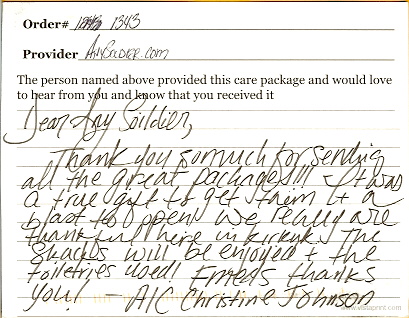 Order# 1343
Provider AnySoldier.com
The person named above provided this care package and would love
to hear from you and know that you received it
Dear Any Soildier,
Thank you so much for sending
all the great packages!!! It was
a true gift to get them & a
blast to open! We really are
thankful here in Kirkuk. The
snacks will be enjoyed & the
toiletries used! Emeds thanks
you! - A1C Christine Johnson
www.vistaprint.com